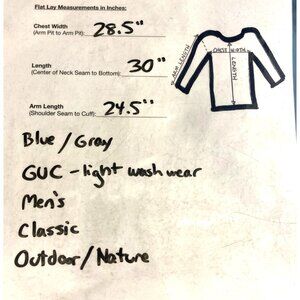 Flat Lay Measurements in Inches:
Chest Width
(Arm Pit to Arm Pit): 28.5"
Length
(Center of Neck Seam to Bottom): 30"
Arm Length
(Shoulder Seam to Cuff): 24.5"
ARM LENGTH
CHEST WIDTH
LENGTH
Blue / Gray
GUC - light wash wear
Men's
Classic
Outdoor / Nature